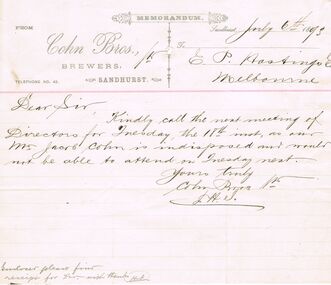 MEMORANDUM.
FROM
Cohn Bros.
BREWERS,
SANDHURST.
TELEPHONE NO. 42.
Sandhurst, July 6th 1893
To
E. P. Hastings
Melbourne
Dear Sir,
Kindly call the next meeting of
Directors for Tuesday the 11th inst, as our
Mr Jacob Cohn is indisposed and would
not be able to attend on Tuesday next.
Yours truly
Cohn Bros
Enclosed please find
receipt for with thanks